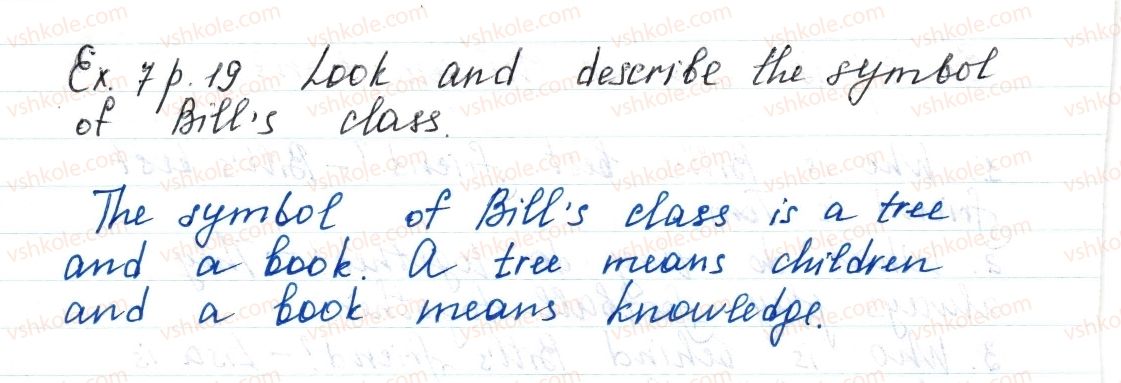 Ex. 7 p. 19 Look and describe the symbol
of Bill's class.
The symbol of Bill's class is a tree
and a book. A tree means children
and a book means knowledge.